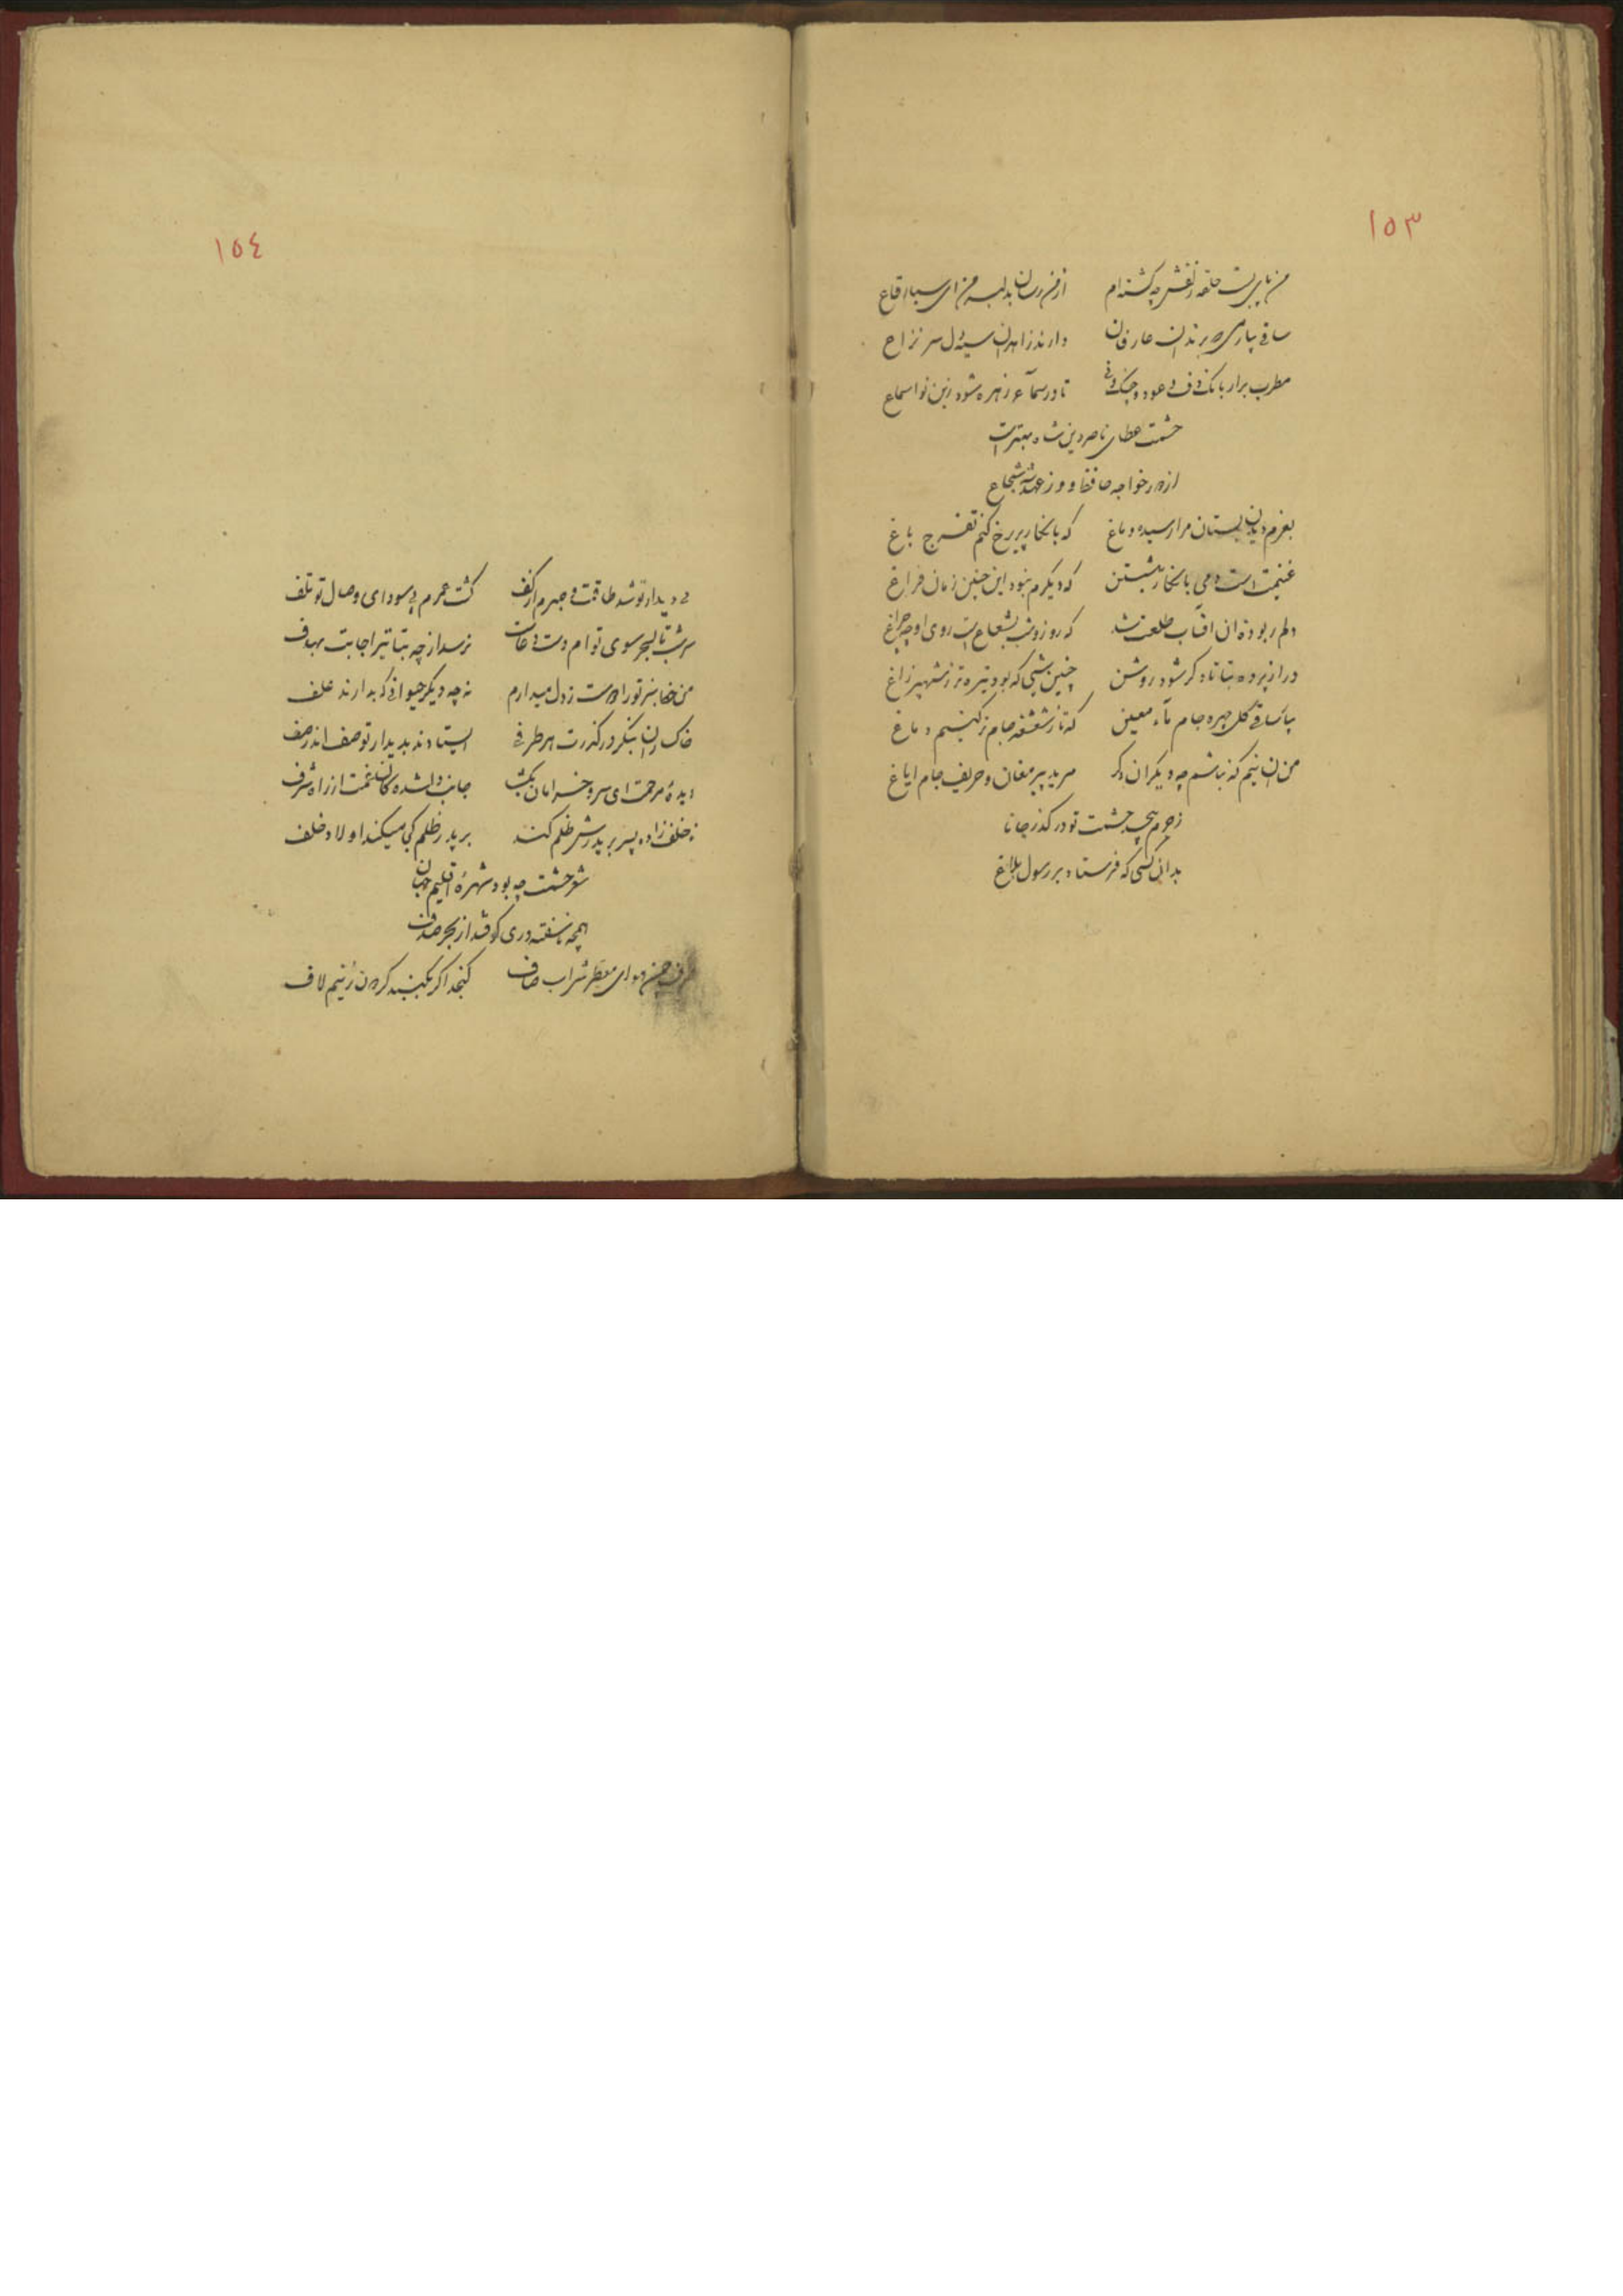 ١٥٣
من پای بست حلقه زلفش چه گشته‌ام از من رسان بدلبر من ای صبا رقاع
ساقی بیار می برندان عارفان دارند زاهدان سیه دل سر نزاع
مطرب برار بانک دف و عود و چنک و نی تا در سماع زهره شود زین نوا سماع
حشمت عطای ناصر دین شاه بهتر است
از خواجه حافظ و وز عهد شه شجاع
بعزم دیدن بستان مرا رسیده دماغ که با نکار پریرخ کنم تفرج باغ
غنیمت است دمی با نکار بنشستن که دیکرم نبود این چنین زمان فراغ
دلم ربوده ان افتاب طلعت شد که روز و شب بشعاعست روی او چه چراغ
در از پرده بتا تا که شود روشن چنین شبی که بود تیره‌تر ز شهپر زاغ
بیا ساقی کل چهره جام مآء معین که تا ز نشئه جام تر کنیم دماغ
من ان نیم که نباشم چه دیکران دکر مرید پیر مغان و حریف جام ایاغ
ز جرم حشمت تو در کذر جانا
بدان کسی که فرستاد بر رسول بلاغ
١٥٤
بی دیدار تو شد طاقت و صبرم از کف کشت عمرم بسودای وصال تو تلف
سر شب تا بسحر سوی توام دست دعاست نرسد از چه بتا تیر اجابت بهدف
من خط سبز تو را دوست ز دل میدارم نه چه دیکر حیوانی که بدارند علف
خاک ران بنکر در کذرت هر طرفی ایستادند بدیدار تو صف اندر صف
دیده مرحمت ای سرو خرامان بکشا جانب دلشده کان غمت از راه شرف
نا خلف زاده پسر بر پدرش ظلم کند بر پدر ظلم کی میکند اولاد خلف
شعر حشمت چه بود شهرهٔ اقلیم جهان
همچه ناسفته دری کوفتد از بحر صدف
طرف چمن هوای معطر شراب صاف کنجد اکر بکیسه کردن زنیم لاف